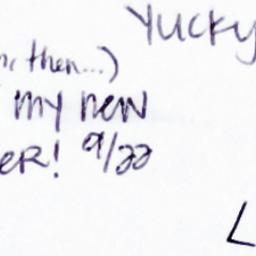 Yucky
then...)
my new
er! 9/22
L